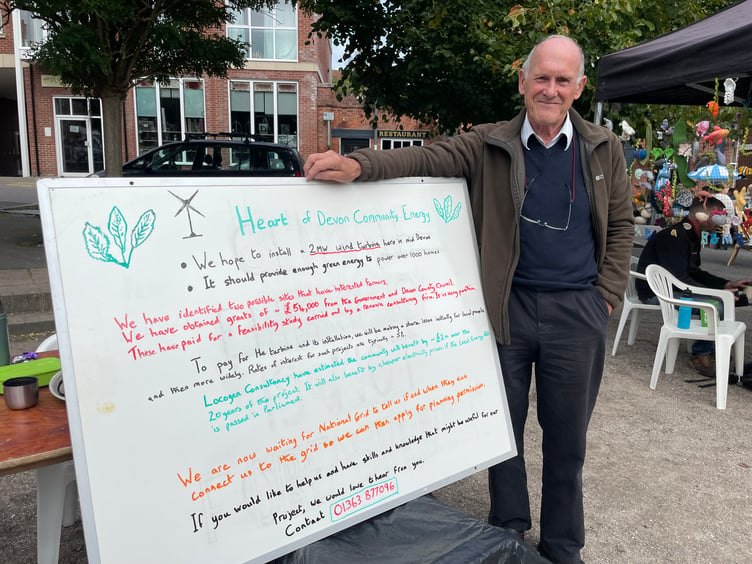 Heart of Devon Community Energy
• We hope to install a 2MW wind turbine here in mid Devon
• It should provide enough green energy to power over 1000 homes
We have identified two possible sites that have interested farmers.
We have obtained grants of ~ £56,000 from the Government and Devon County Council
These have paid for a feasibility study carried out by a renewable consultancy firm. It is very positive.
To pay for the turbine and its installation, we will be making a share issue initially for local people
and then more widely. Rates of interest for such projects are typically ~ 5%.
Locogen Consultancy have estimated the community will benefit by ~£2m over the
20 years of this project. It will also benefit by cheaper electricity prices if the Local Energy Bill
is passed in Parliament.
We are now waiting for National Grid to tell us if and when they can
connect us to the grid so we can then apply for planning permission.
If you would like to help us and have skills and knowledge that might be useful for our
Project, we would love to hear from you.
Contact 01363 877096
RESTAURANT